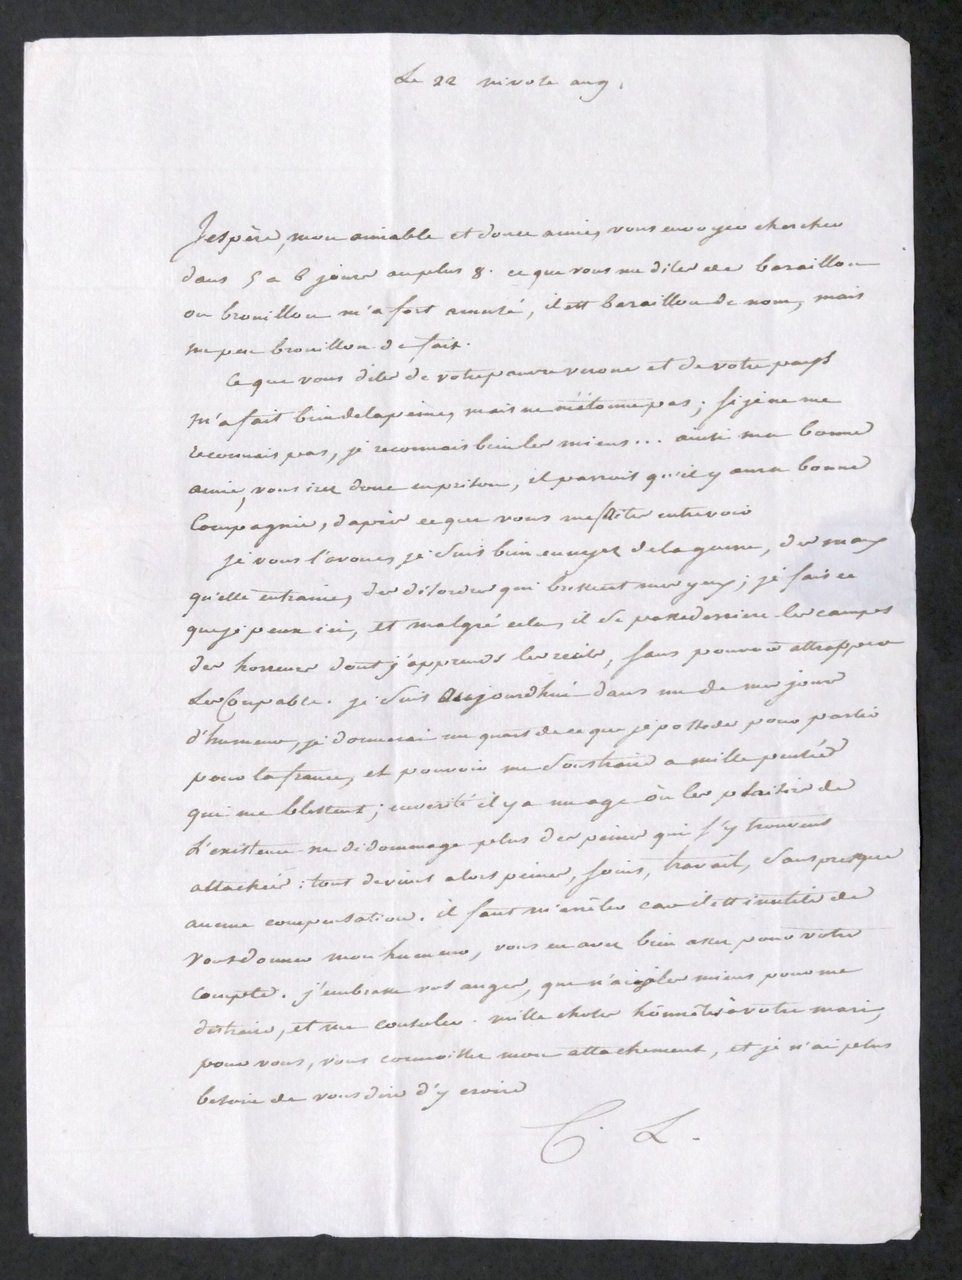 Le 22 nivose an 9.
J'espère, mon aimable et douce amie, vous envoyer chercher
dans 5 a 6 jours au plus 8. ce que vous me dites de baraillon
ou brouillon m'a fort amusé, il est baraillon de nom, mais
un peu brouillon de fait.
Ce que vous dites de votre pauvre verone et de votre pays
m'a fait bien de la peine, mais ne m'étonne pas; si je ne me
reconnais pas, je reconnais bien les miens... ainsi ma bonne
amie, vous irez donc en prison, il parroit qu'il y aura bonne
Compagnie, d'après ce que vous me faites entrevoir
je vous l'avoue, je suis bien ennuyé de la guerre, des maux
qu'elle entraine, des désordres qui blessent mes yeux; je fais ce
que je peux ici, et malgré cela, il se passe derriere les camps
des horreurs dont j'apprends les recits, sans pouvoir attrapper
Le Coupable. je suis Aujourdhui dans un de mes jours
d'humeur, je donnerai un quart de ce que je possede pour partir
pour la france, et pouvoir me soustraire a mille
qui me blessent; en verité il y a un age où les plaisirs de
L'existence ne dédommage plus des peines qui s'y trouvent
attachées: tout devient alors peines, soins, travail, sans presque
aucune compensation. il faut m'arrêter car il est inutile de
vous donner mon humeur, vous en avez bien assez pour votre
compte. j'embrasse vos anges, que n'ai-je les miens pour me
distraire, et me consoler. mille choses honnêtes à votre mari,
pour vous, vous connoissez mon attachement, et je n'ai plus
besoin de vous dire d'y croire
C. L.